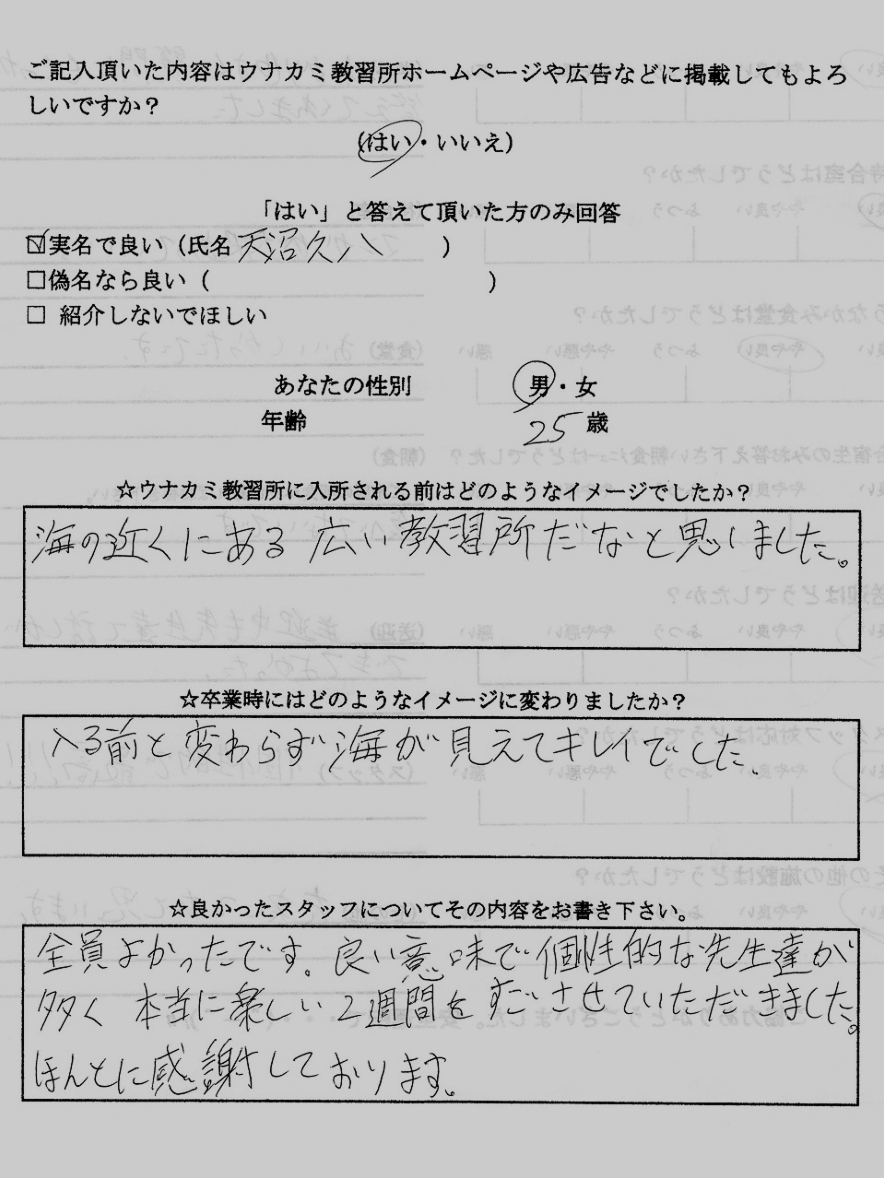 ご記入頂いた内容はウナカミ教習所ホームページや広告などに掲載してもよろ
しいですか？
(はい・いいえ)
「はい」と答えて頂いた方のみ回答
☑実名で良い（氏名 天沼久八 ）
□偽名なら良い（ ）
□ 紹介しないでほしい
あなたの性別 男・女
年齢 25歳
☆ウナカミ教習所に入所される前はどのようなイメージでしたか？
海の近くにある広い教習所だなと思いました。
☆卒業時にはどのようなイメージに変わりましたか？
入る前と変わらず海が見えてキレイでした.
☆良かったスタッフについてその内容をお書き下さい。
全員よかったです。良い意味で個性的な先生達が
多く 本当に楽しい2週間をすごさせていただきました。
ほんとに感謝しております。